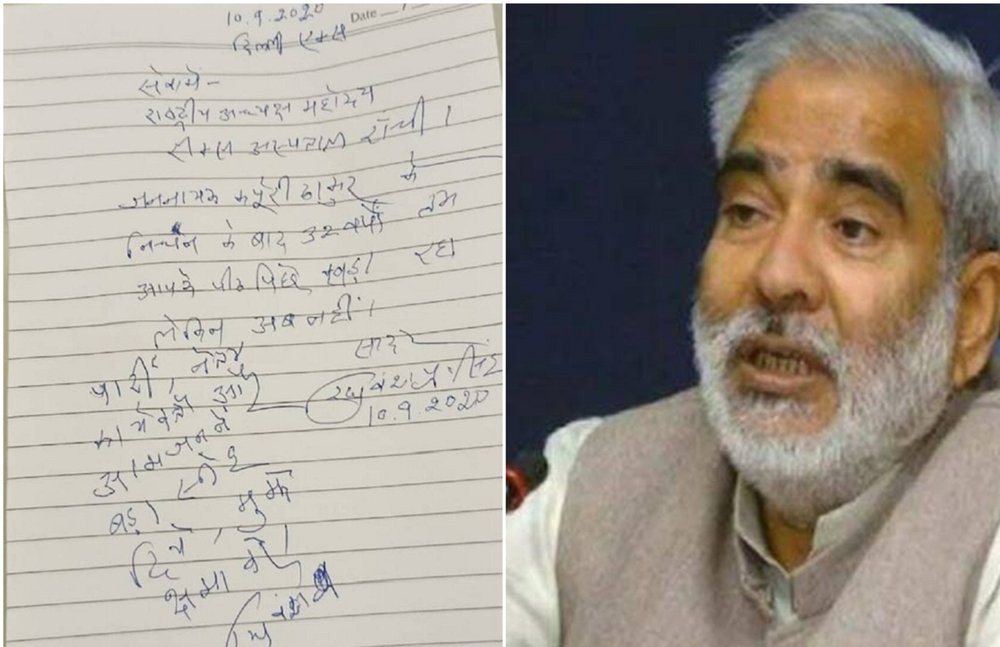 Date
10.9.2020
दिल्ली एम्स
सेवामें-
राष्ट्रीय अध्यक्ष महोदय
रीम्स अस्पताल राँची।
जननायक कर्पूरी ठाकुर के
निधन के बाद 32 वर्षों तक
आपके पीठ पीछे खड़ा रहा
लेकिन अब नहीं।
पार्टी, नेता,
कार्यकर्ता और
आमजन ने
बड़ा स्नेह
दिया, मुझे
क्षमा करें।
सादर
रघुवंश प्र. सिंह
10.9.2020